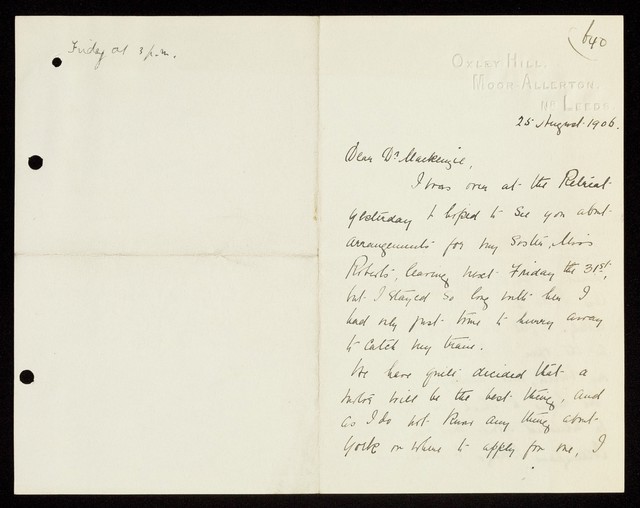 Friday at 3 p.m.
640
OXLEY HILL.
MOOR ALLERTON.
NR LEEDS.
25 August 1906.
Dear Dr Mackenzie,
I was over at the Retreat
yesterday & hoped to see you about
arrangements for my Sister, Miss
Roberts, leaving next Friday the 31st,
but I stayed so long with her I
had only just time to hurry away
to catch my train.
We have quite decided that a
motor will be the best thing, and
as I do not know any thing about
York or where to apply for one, I